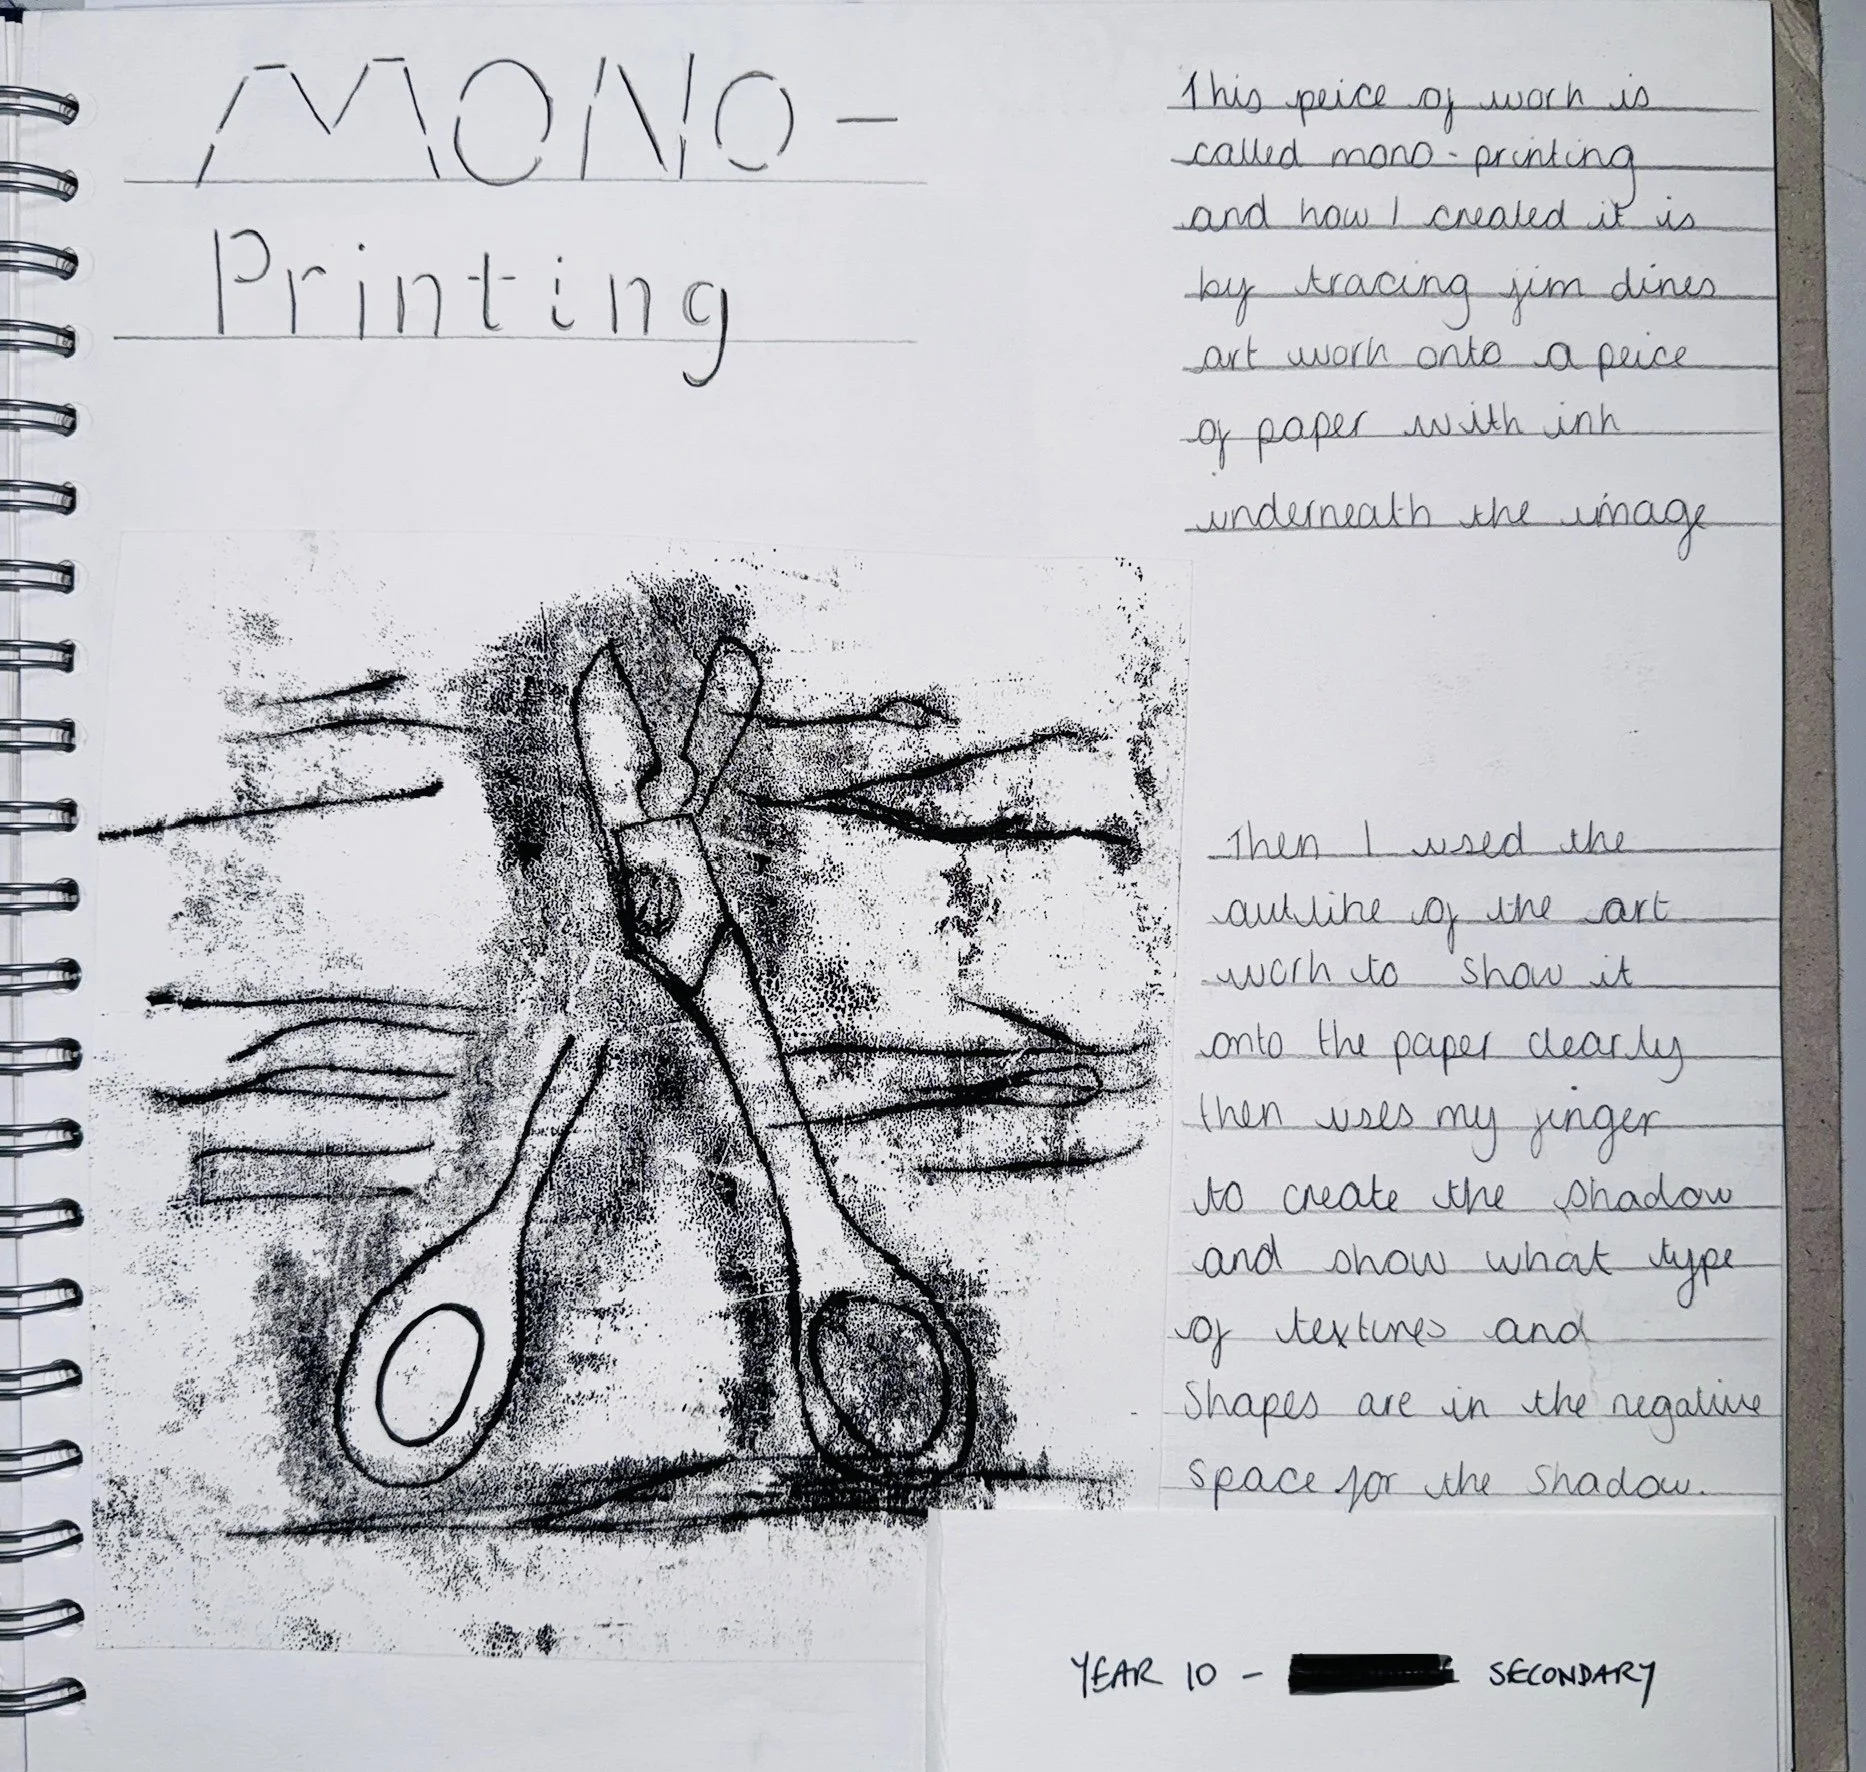 MONO-
Printing
This peice of work is
called mono-printing
and how I created it is
by tracing jim dines
art work onto a peice
of paper with ink
underneath the image
Then I used the
outline of the art
work to show it
onto the paper clearly
then uses my finger
to create the shadow
and show what type
of textures and
Shapes are in the negative
space for the shadow.
YEAR 10 - SECONDARY